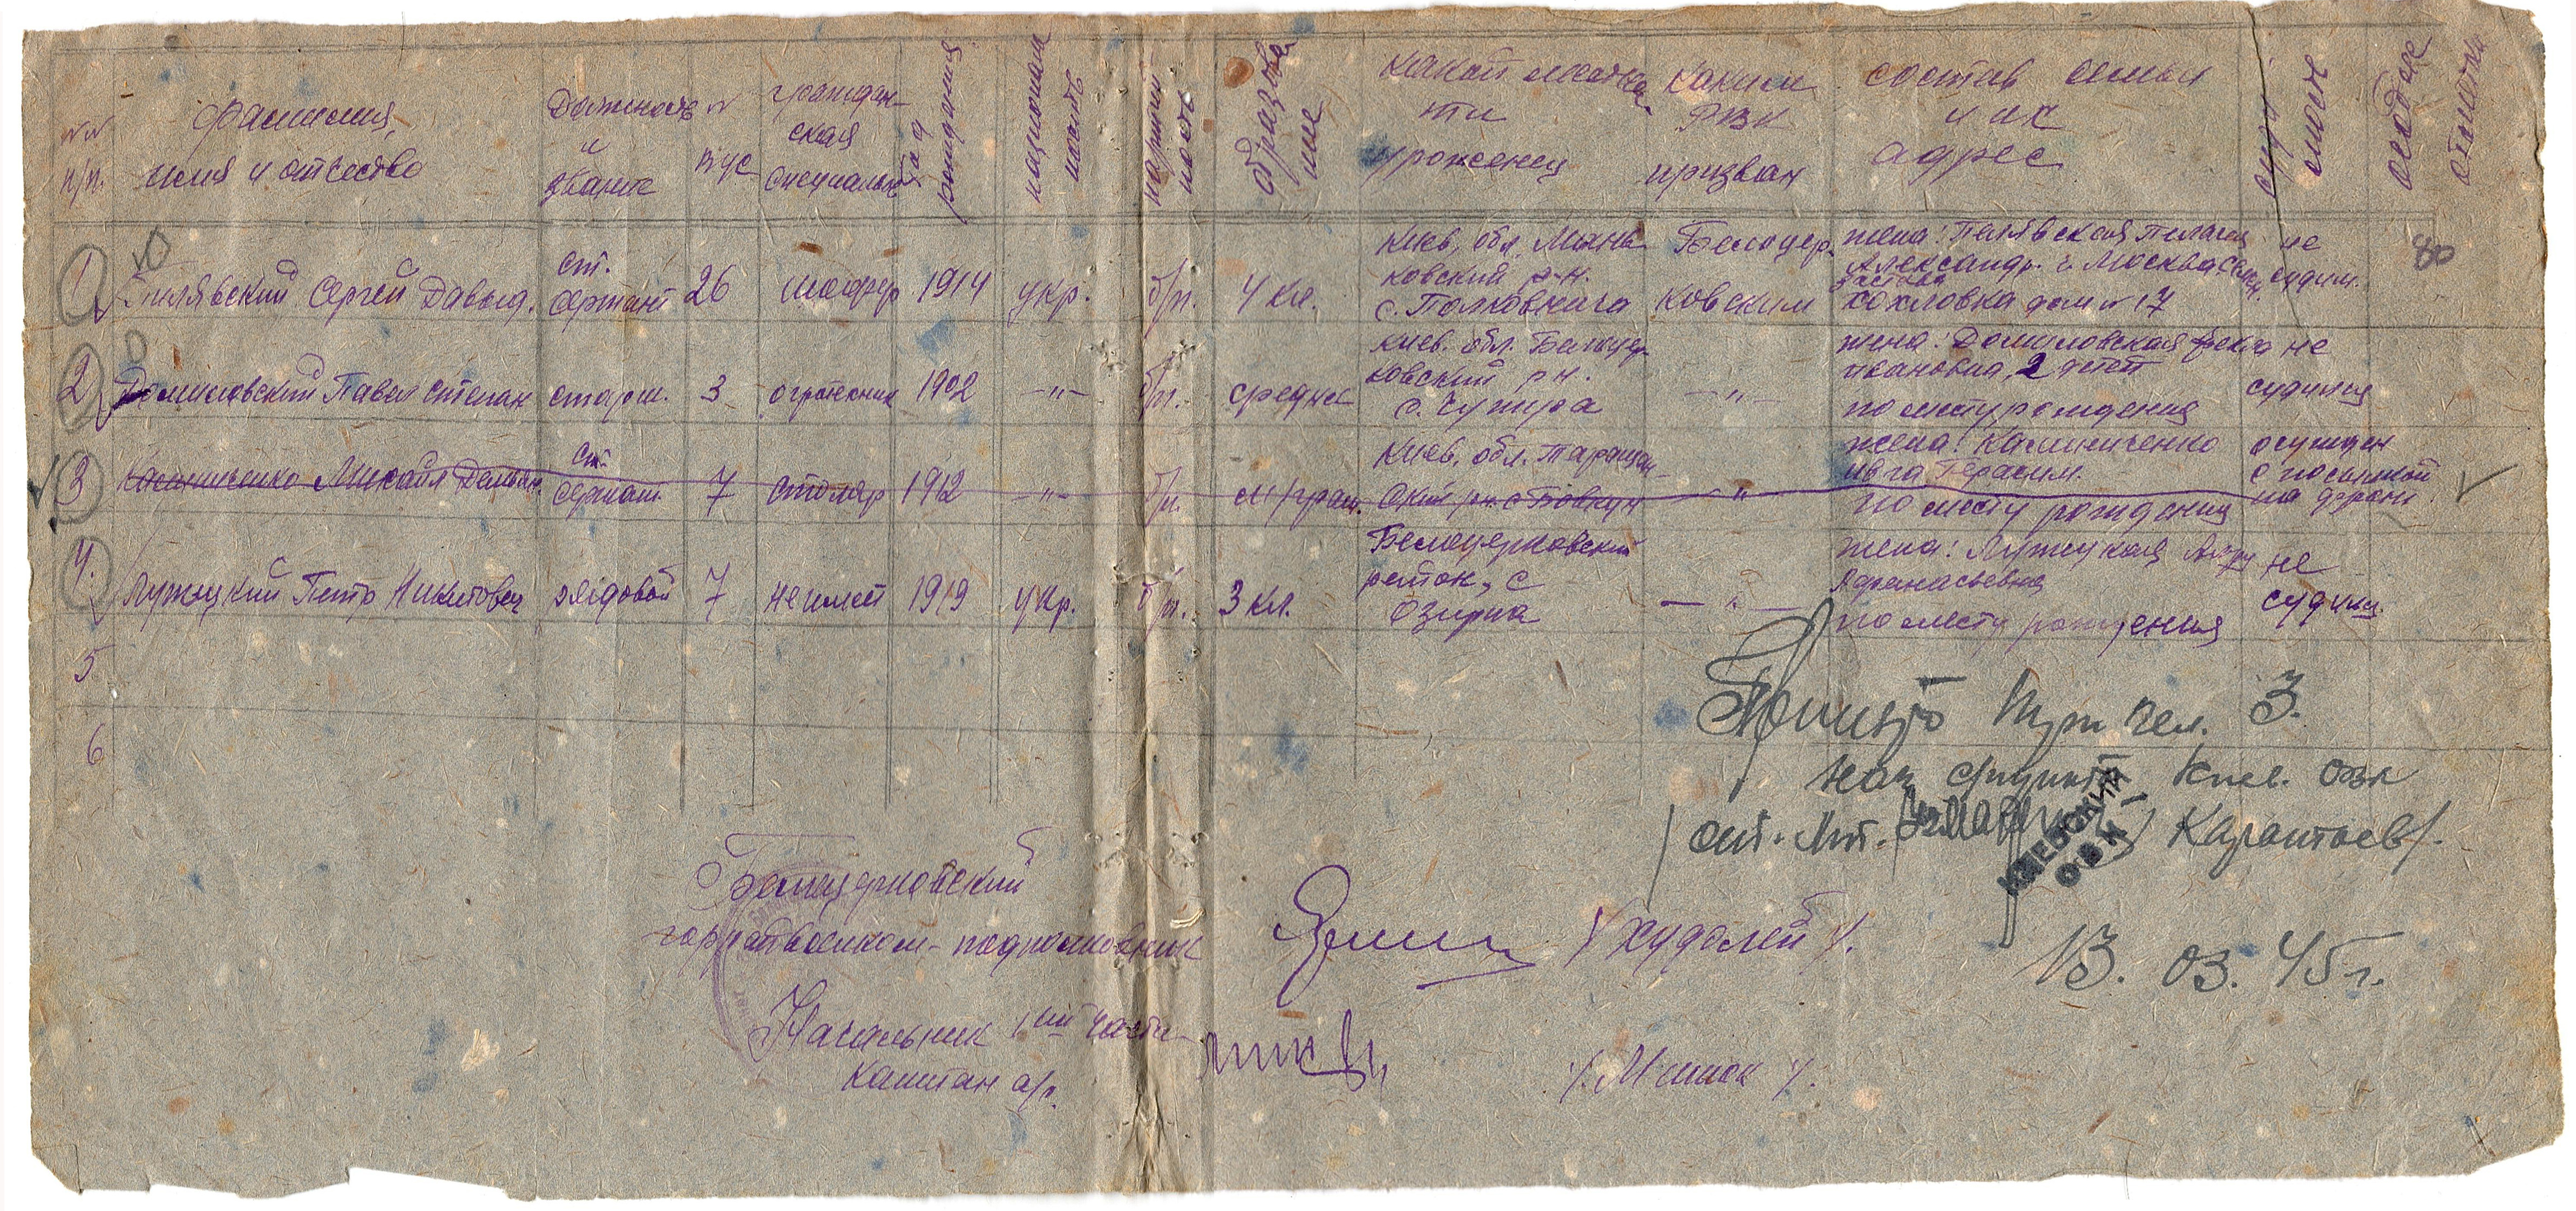 №№ п/п.
фамилия, имя и отчество
Должность и звание
№ вус
граждан-ская специальн.
год рождения
национальность
партийность
образование
какой местности уроженец
каким РВК призван
состав семьи и их адрес
судимость
особые отметки
1 Пилявский Сергей Давыд. ст. сержант 26 шофер 1914 укр. б/п. 4 кл.
Киев. обл. Мань-
ковский р-н.
с. Полковнича
Белоцер-
ковским
жена: Пилявская Пелагея
Александр. г. Москва
Хохловка дом № 17
не
судим.
80
2 Домиловский Павел Степан старш. 3 агротехник 1902 -"- б/п. средне
Киев. обл. Белоцер-
ковский р-н.
с. Чупира
-"-
жена: Домиловская Фекла
Ивановна, 2 детей
по месту рождения
не
судился
3 Калиниченко Михаил Демьян. ст. сержант. 7 столяр 1912 -"- б/п. м/грам.
Киев. обл. Таращан-
ский рн. с. Бовкун
"
жена: Калиниченко
Ивга Герасим.
по месту рождения
осужден
с посылкой
на фронт
4. Лужецкий Петр Никитович рядовой 7 не имеет 1919 укр. б/п. 3 кл.
Белоцерковский
район, с
Озирна
-"-
жена: Лужецкая
Афанасьевна
по месту рождения
не
судим.
5
6
Принято чел. 3.
Киев. ОВК
ст. лт.
КИЕВСКИЙ
ОВК
Белоцерковский
горрайвоенком - подполковник /Худолей/.
13. 03. 45 г.
Начальник 1-ой части
капитан а/с. /Мишок/.